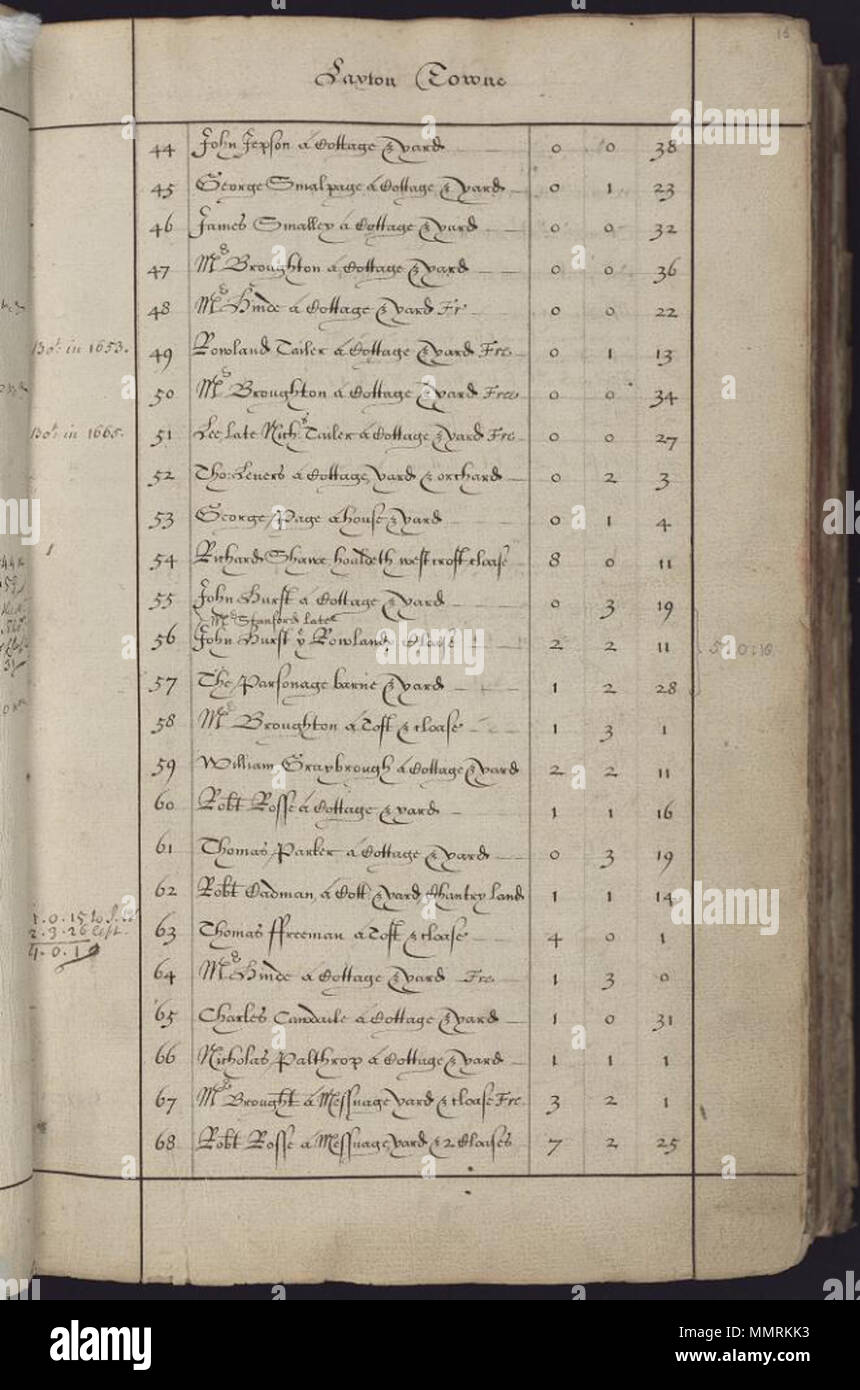 16
Laxton Towne
44 John Jepson a Cottage & yard 0 0 38
45 George Smalpage a Cottage & yard 0 1 23
46 James Smalley a Cottage & yard 0 0 32
47 Mrs Broughton a Cottage & yard 0 0 36
48 Mrs Hinde a Cottage & yard Fr 0 0 22
Bot: in 1653. 49 Rowland Tailer a Cottage & yard Fre 0 1 13
50 Mrs Broughton a Cottage & yard Free 0 0 34
Bot: in 1665. 51 Lee late Nich: Tailer a Cottage & yard Fre 0 0 27
52 Tho: Levers a Cottage yard & orchard 0 2 3
53 George Page a house & yard 0 1 4
54 Richard Shawe houldeth westcroft cloase 8 0 11
55 John Hurst a Cottage & yard 0 3 19
Mrs Stanford late
56 John Hurst y Rowland Cloase 2 2 11
57 The Parsonage barne & yard 1 2 28
58 Mrs Broughton a Toft & cloase 1 3 1
59 William Graybrough a Cottage & yard 2 2 11
60 Robt Rosse a Cottage & yard 1 1 16
61 Thomas Parker a Cottage & yard 0 3 19
62 Robt Cadman a Cott: yard Chantry land 1 1 14
1.0.15 to
2.3.26 left
4.0.1
63 Thomas ffreeman a Toft & cloase 4 0 1
64 Mrs Hinde a Cottage & yard Fre 1 3 0
65 Charles Camdaile a Cottage & yard 1 0 31
66 Nicholas Palthrop a Cottage & yard 1 1 1
67 Mrs Brought a Messuage yard & cloase Fre 3 2 1
68 Robt Rosse a Messuage yard & 2 Cloases 7 2 25
alamy
MMRKK3
Image ID: MMRKK3
www.alamy.com